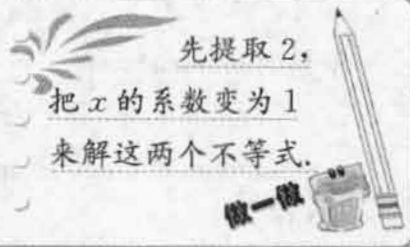 先提取2，
把x的系数变为1
来解这两个不等式.
做一做